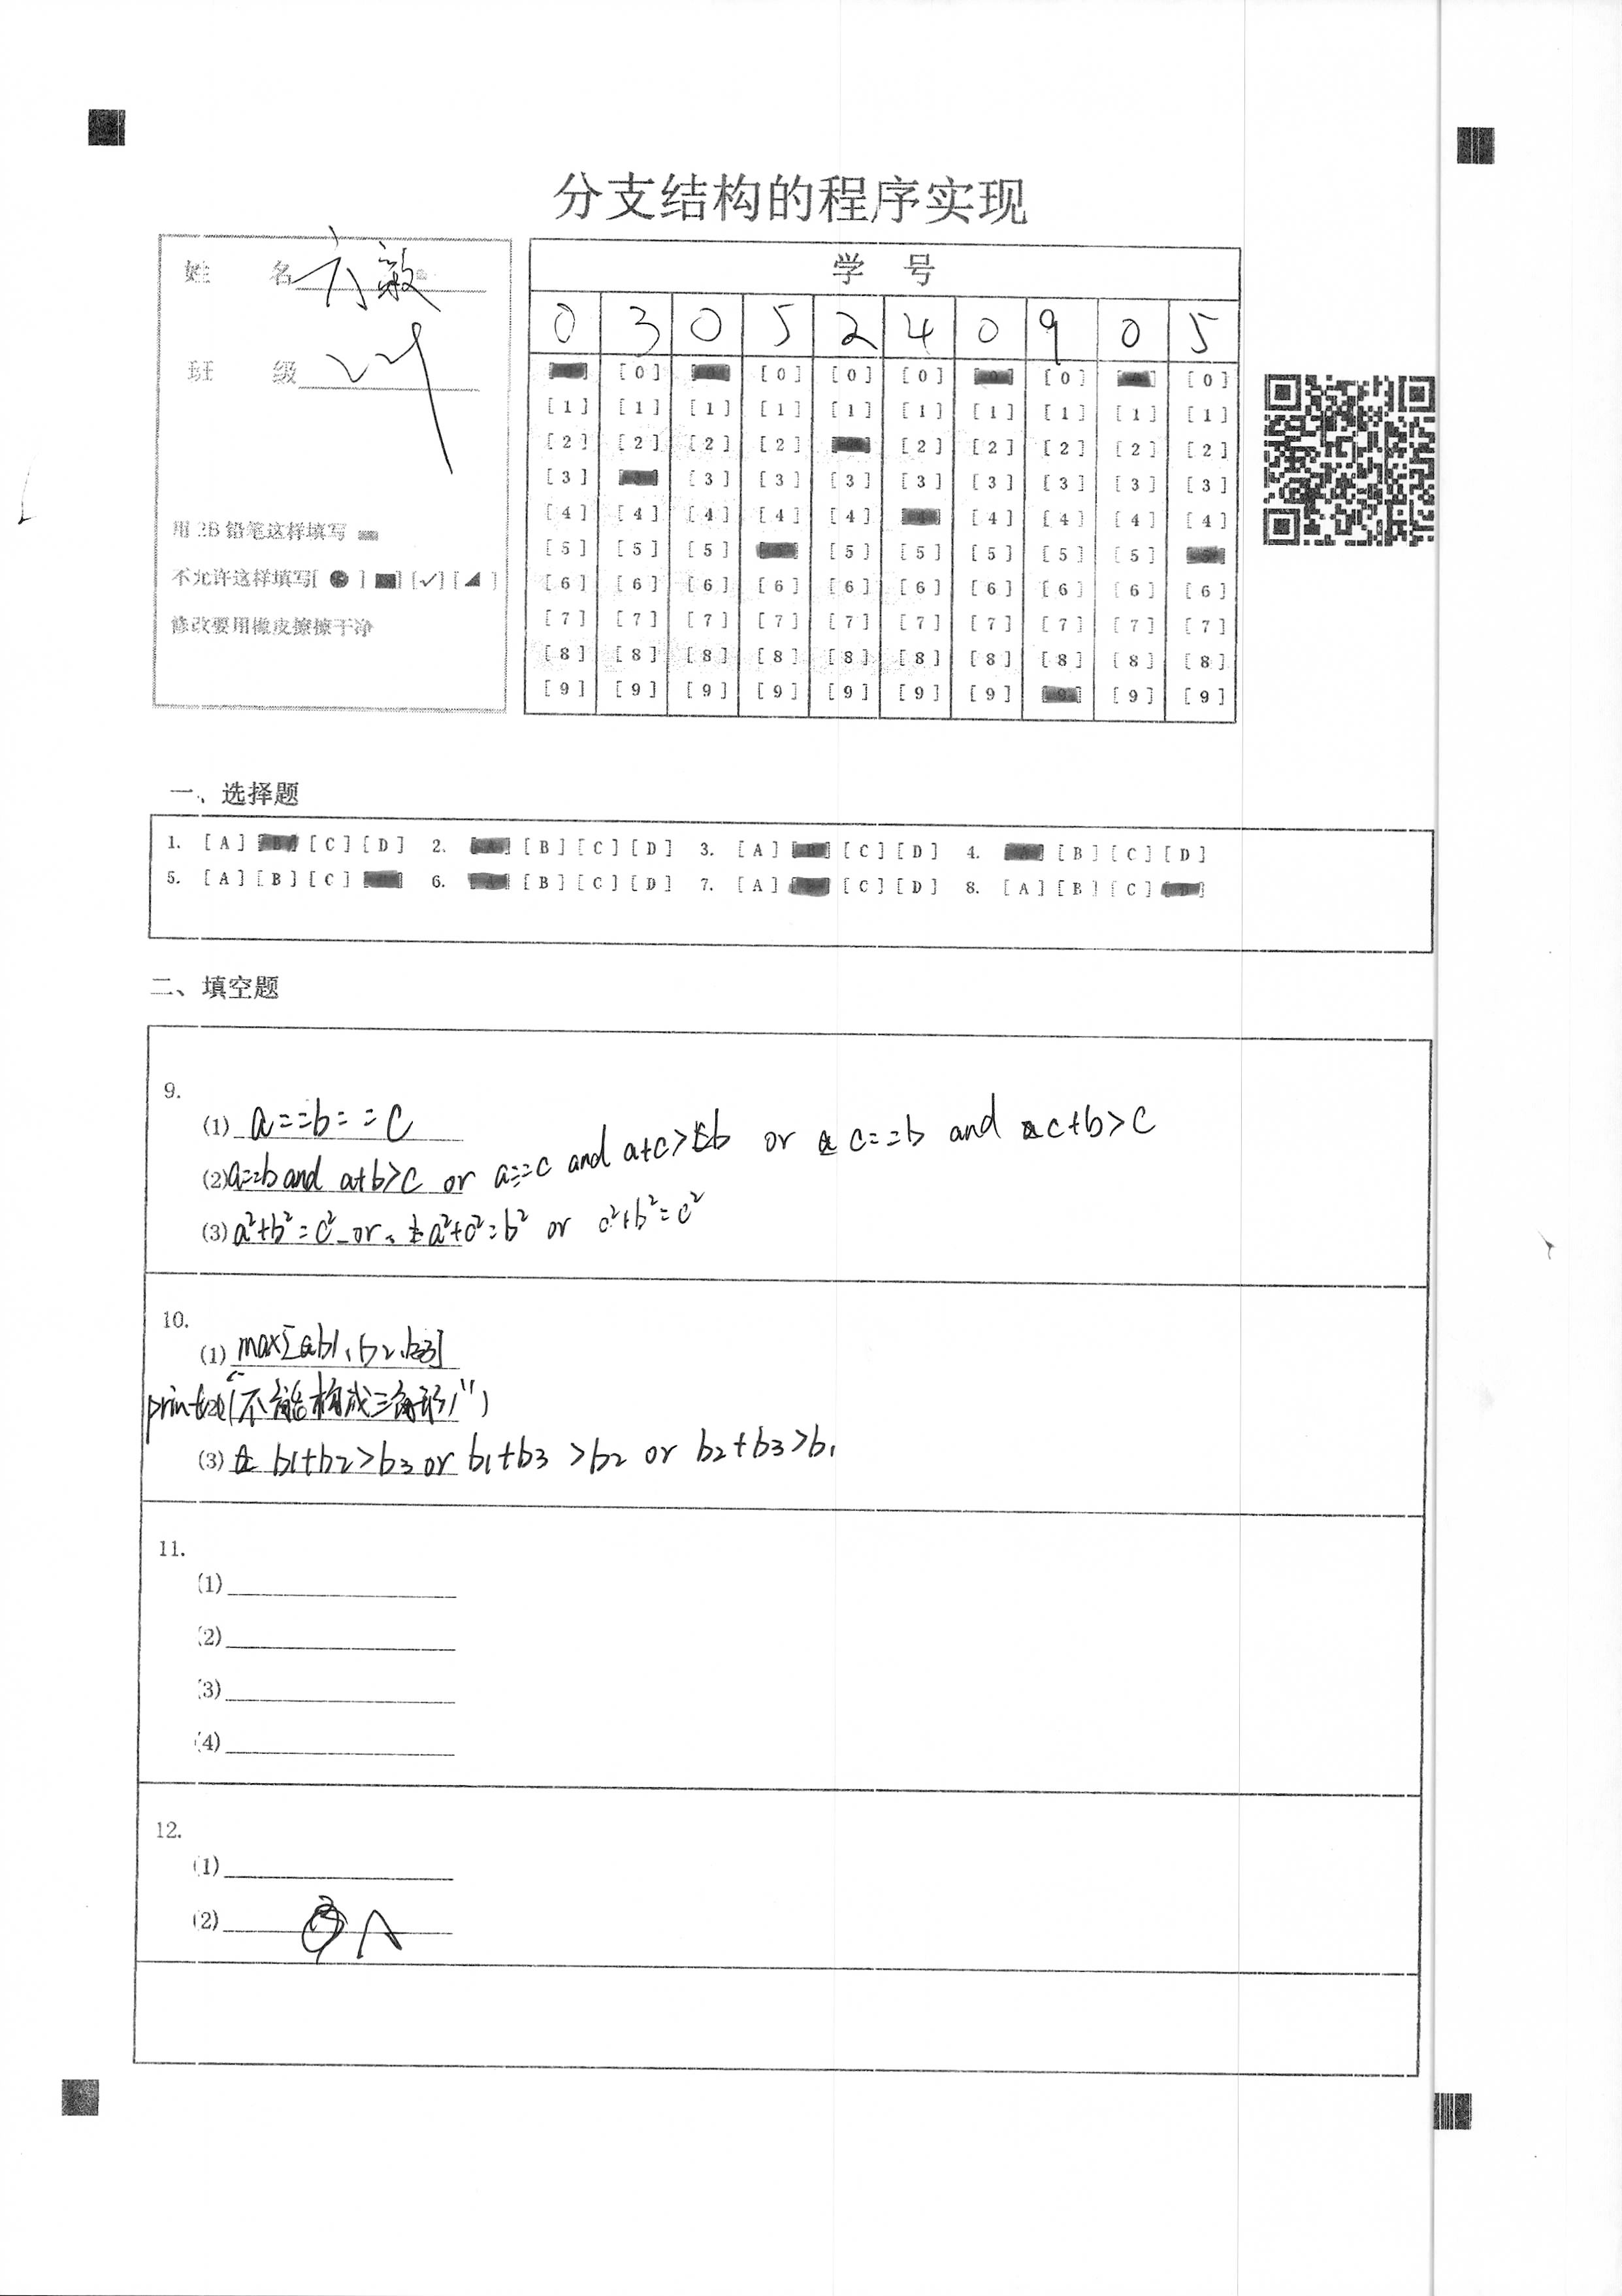 分支结构的程序实现
姓 名
班 级
用 2B 铅笔这样填写
不允许这样填写[ ● ] [■] [✓] [◢ ]
修改要用橡皮擦擦干净
学 号
0 3 0 5 2 4 0 9 0 5
[0] [0] [0] [0] [0] [0]
[1] [1] [1] [1] [1] [1] [1] [1] [1] [1]
[2] [2] [2] [2] [2] [2] [2] [2] [2]
[3] [3] [3] [3] [3] [3] [3] [3] [3]
[4] [4] [4] [4] [4] [4] [4] [4] [4]
[5] [5] [5] [5] [5] [5] [5] [5]
[6] [6] [6] [6] [6] [6] [6] [6] [6] [6]
[7] [7] [7] [7] [7] [7] [7] [7] [7] [7]
[8] [8] [8] [8] [8] [8] [8] [8] [8] [8]
[9] [9] [9] [9] [9] [9] [9] [9] [9] [9]
一、选择题
1. [A] [B] [C] [D] 2. [A] [B] [C] [D] 3. [A] [B] [C] [D] 4. [A] [B] [C] [D]
5. [A] [B] [C] [D] 6. [A] [B] [C] [D] 7. [A] [B] [C] [D] 8. [A] [B] [C] [D]
二、填空题
9.
(1) a==b==c
(2) a==b and a+b>c or a==c and a+c>b or c==b and c+b>c
(3) a²+b²=c² or a²+c²=b² or c²+b²=c²
10.
(1) max[b1、b2、b3]
print("不能构成三角形!")
(3) b1+b2>b3 or b1+b3>b2 or b2+b3>b1
11.
(1)
(2)
(3)
(4)
12.
(1)
(2) A